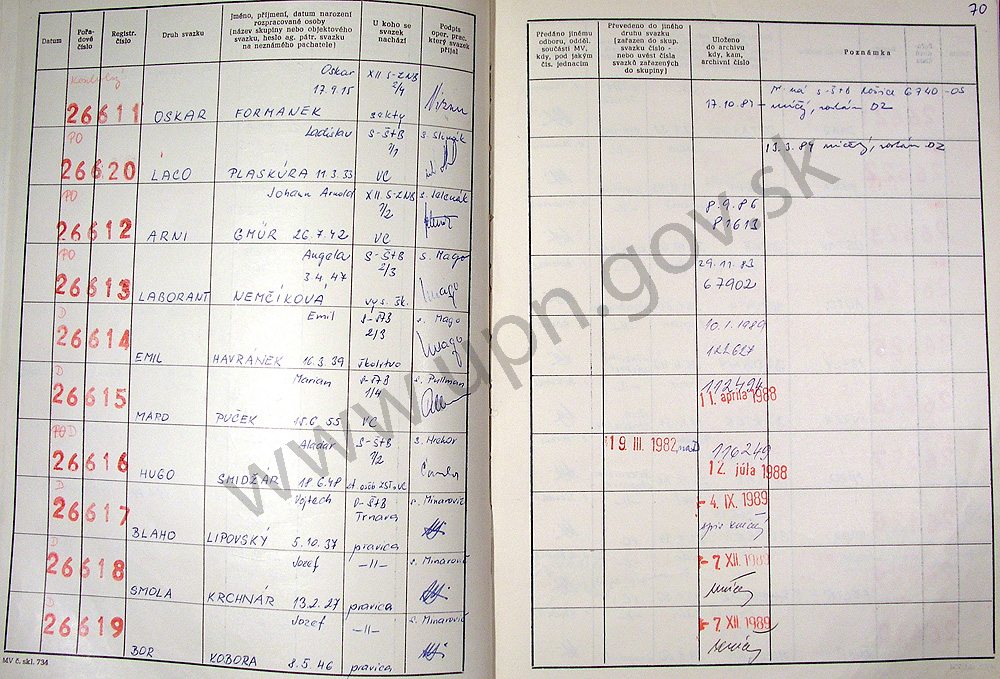 70
Datum
Pořadové číslo
Registr. číslo
Druh svazku
Jméno, příjmení, datum narození rozpracované osoby (název skupiny nebo objektového svazku, heslo ag. pátr. svazku na neznámého pachatele)
U koho se svazek nachází
Podpis oper. prac. který svazek přijal
Předáno jinému odboru, odděl. součásti MV, kdy, pod jakým čís. jednacím
Převedeno do jiného druhu svazku (zařazen do skup. svazku číslo - nebo uvést čísla svazků zařazených do skupiny)
Uloženo do archivu kdy, kam, archivní číslo
Poznámka
Oskar XII S-ZNB
17.9.15 2/4
26611 OSKAR FORMANEK sekty
17.10.89
Ladislav S-ŠtB
PO
26620 LACO PLASKÚRA 11.3.33 VC
13.3.84
Johann Arnold XII. S-ZNB
PO 7/2
26612 ARNI GMÜR 26.7.42 VC
8.9.86
81613
Angela S-ŠtB s. Mago
PO 3.4.47 2/3
26613 LABORANT NEMČÍKOVÁ vys. šk.
29.11.83
67902
Emil S-ŠtB s. Mago
D 2/3
26614 EMIL HAVRÁNEK 16.3.39 školstvo
10.1.1989
122627
Marian S-ŠtB s. Pullman
D 1/4
26615 MAPO PUČEK 15.6.55 VC
112494
11. apríla 1988
Aladár S-ŠtB s. Hrehor
PO D 7/2
26616 HUGO SMIDŽÁR 18.6.48
19. III. 1982
116249
12. júla 1988
Vojtech S-ŠtB s. Minarovič
Trnava
26617 BLAHO LIPOVSKÝ 5.10.37 pravica
- 4. IX. 1989
Jozef -II- s. Minarovič
D
26618 SMOLA KRCHNÁR 13.2.27 pravica
- 7. XII. 1989
Jozef -II- s. Minarovič
D
26619 BOR KOBORA 8.5.46 pravica
- 7. XII. 1989
MV č. skl. 734
www.upn.gov.sk